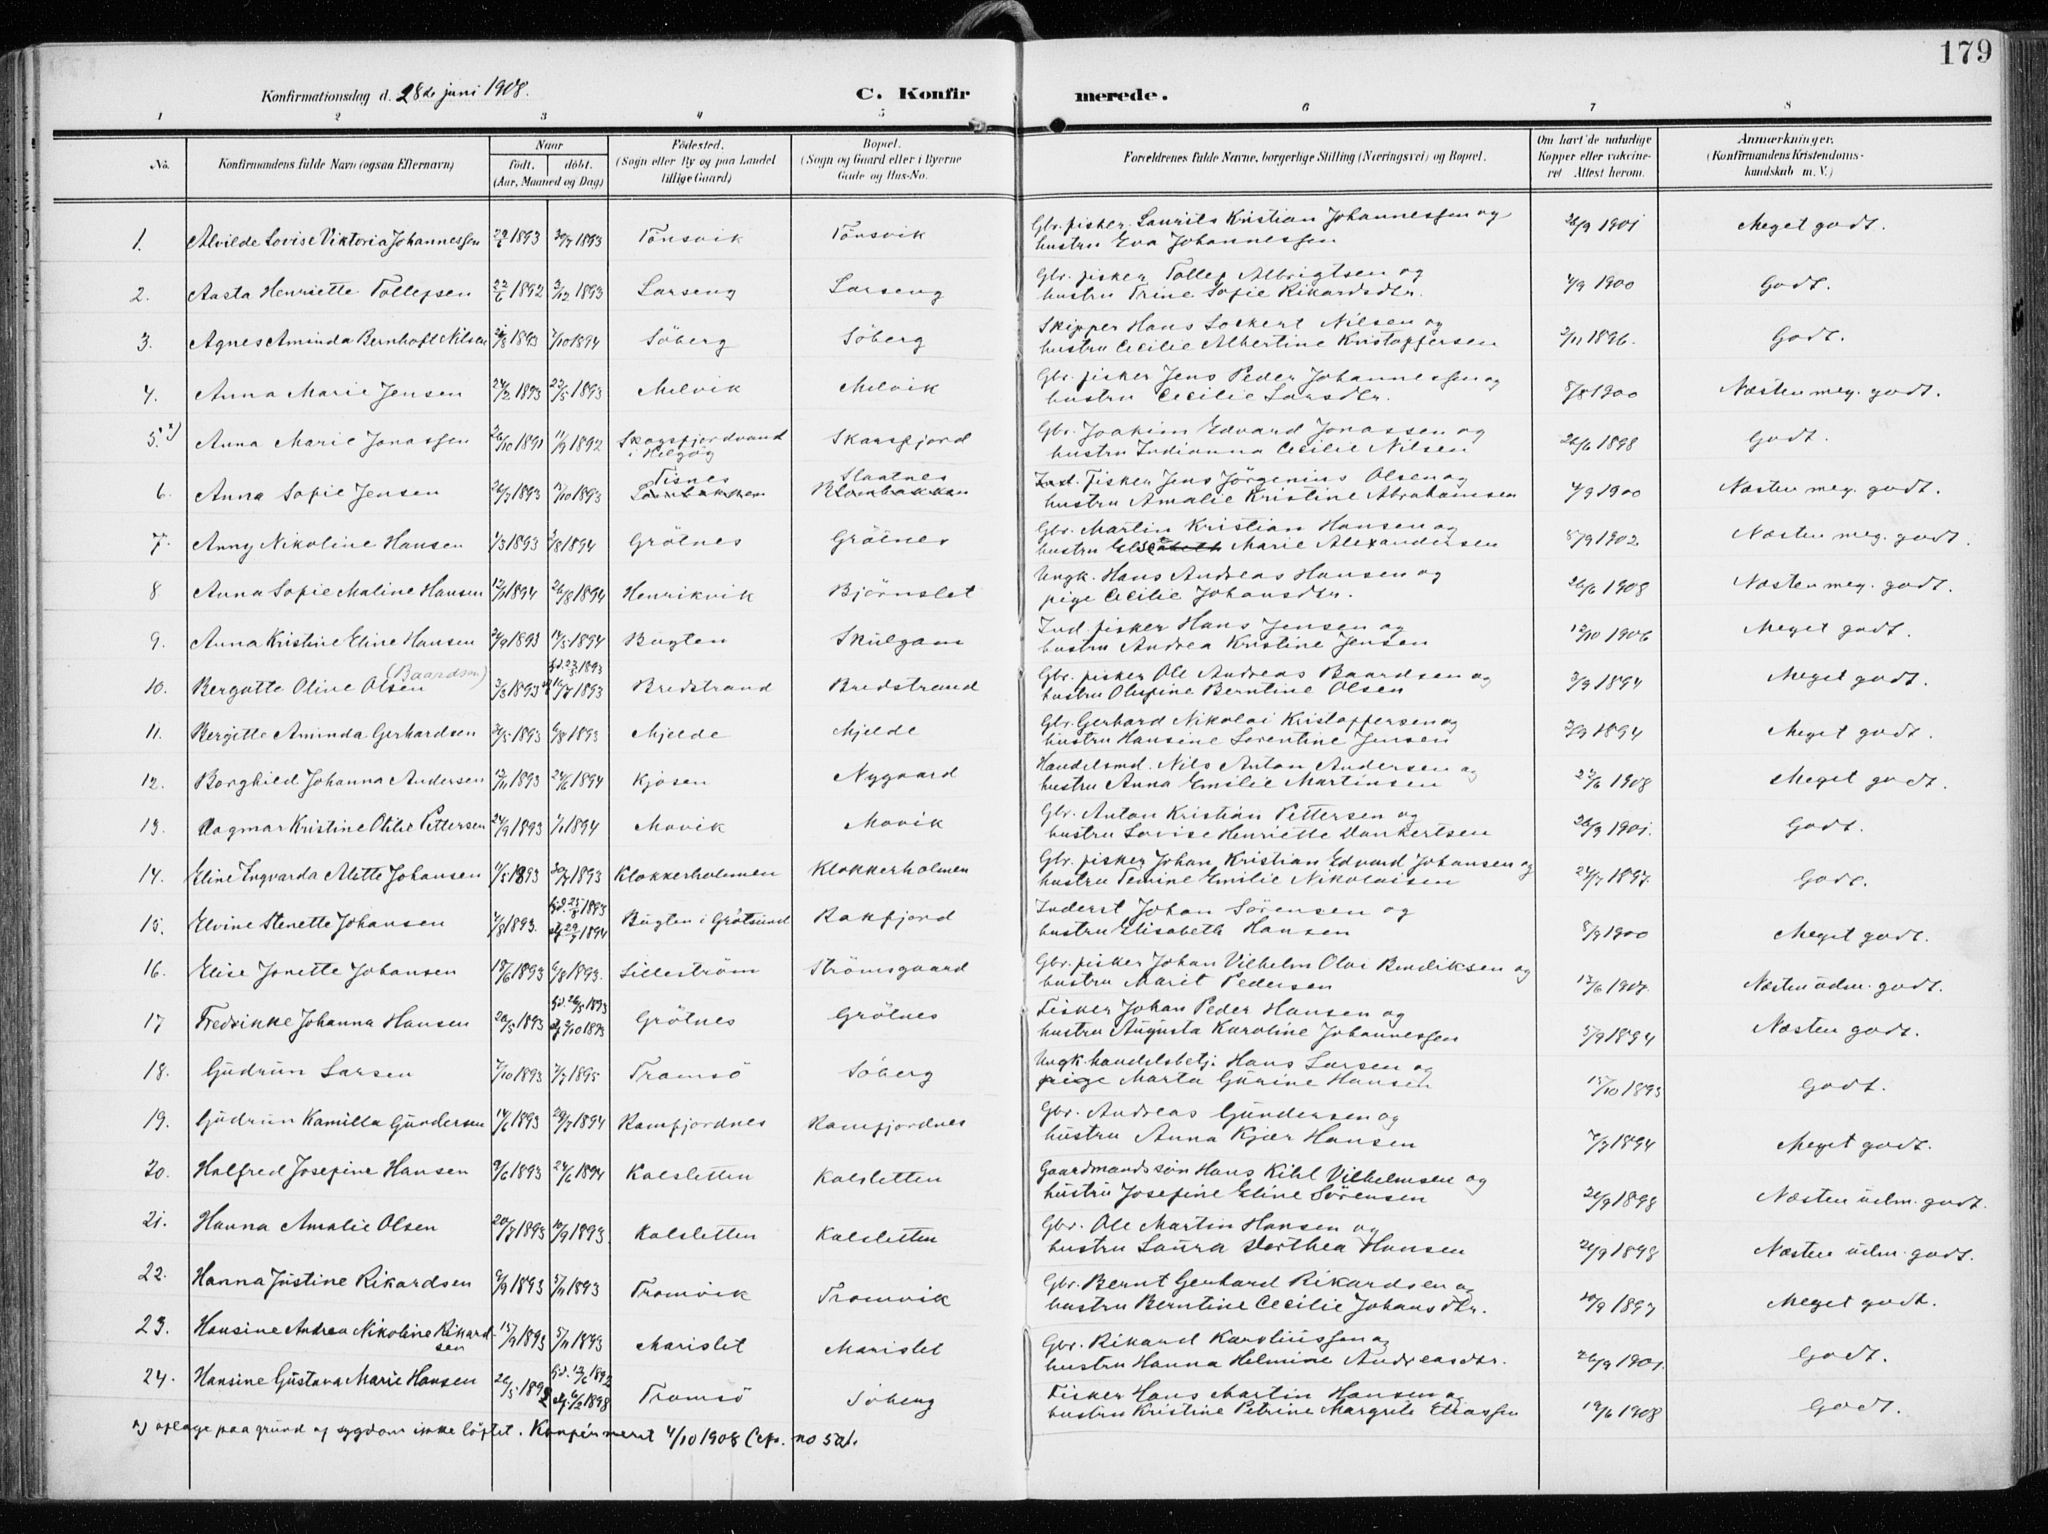 179
Konfirmationsdag d. 28de juni 1908.
C. Konfirmerede.
1 2 3 4 5 6 7 8
No. Konfirmandens fulde Navn (ogsaa Efternavn) Naar født. døbt. (Aar, Maaned og Dag) Fødested. (Sogn eller By og paa Landet tillige Gaard) Bopæl. (Sogn og Gaard eller i Byerne Gade og Hus-No. Forældrenes fulde Navne, borgerlige Stilling (Næringsvei) og Bopæl. Om havt de naturlige Kopper eller vakcineret. Attest herom. Anmærkninger. (Konfirmandens Kristendomskundskab m. V.)
1. Alvilde Lovise Viktoria Johannessen 1893 30/7 1893 Tønsvik Tønsvik Gbr. fisker. Laurits Kristian Johannessen og 26/9 1901 Meget godt.
hustru Eva Johannessen
2. Aasta Henriette Tollefsen 22/6 1892 3/12 1893 Larseng Larseng Gbr. fisker Tollef Albrigtsen og 4/9 1900 Godt.
hustru Trine Sofie Rikardsdtr.
3. Agnes Aminda Bernhoft Nilsen 1893 7/10 1894 Søberg Søberg Skipper Hans Lockert Nilsen og 2/11 1896. Godt.
hustru Cecilie Albertine Kristoffersen
4. Anna Marie Jensen 24/2 1893 22/5 1893 Melvik Melvik Gbr. fisker Jens Peder Johannessen og 8/8 1900 Næsten meg. godt.
hustru Cecilie Larsdtr.
5. x) Anna Marie Jonassen 26/10 1891 11/9 1892 Skogsfjordvand i Helgøy Skarsfjord Gbr. Joakim Edvard Jonassen og 26/6 1898 Godt.
hustru Indianna Cecilie Nilsen
6. Anna Sofie Jensen 26/3 1893 1893 Tisnes Slaatnes Ind. Fisker Jens Jørgenius Olsen og 4/9 1900 Næsten meg. godt.
hustru Amalie Kristine Abrahamsen
7. Anny Nikoline Hansen 1/3 1893 1894 Grøtnes Grøtnes Gbr. Martin Kristian Hansen og 8/9 1902 Næsten meg. godt.
hustru Marie Alexandersen
8 Anna Sofie Maline Hansen 1894 26/8 1894 Henrikvik Bjørnslet Ungk. Hans Andreas Hansen og 26/6 1908 Næsten meg. godt.
pige Cecilie Johansdtr.
9. Anna Kristine Eline Hansen 1893 14/5 1894 Bugten Skulgam Ind. fisker Hans Jensen og 12/10 1906 Meget godt.
hustru Andrea Kristine Jensen
10. Bergotte Oline Olsen (Baardsen) 3/3 1893 hd. 23/3 1893 1893 Bredstrand Bredstrand Gbr. fisker Ole Andreas Baardsen og 3/9 1894 Meget godt.
hustru Olufine Berntine Olsen
11. Bergitte Aminda Gerhardsen 1893 6/8 1893 Mjelde Mjelde Gbr. Gerhard Nikolai Kristoffersen og 2/9 1894 Meget godt.
hustru Hansine Lorentine Jensen
12. Borghild Johanna Andersen 12/11 1893 24/6 1894 Kjosen Nygaard Handelsmd. Nils Anton Andersen og 22/6 1908 Meget godt.
hustru Anna Emilie Martinsen
13. Dagmar Kristine Otilie Pettersen 24/9 1893 1/1 1894 Movik Movik Gbr. Anton Kristian Pettersen og 26/9 1901. Godt.
hustru Lovise Henriette Dankertsen
14. Eline Ingvarda Alette Johansen 11/5 1893 30/7 1893 Klokkerholmen Klokkerholmen Gbr. fisker Johan Kristian Edvard Johansen og 24/7 1897. Godt.
hustru Temine Emilie Nikolaisen
15. Elvine Stenette Johansen 1893. hd. 25/8 1893 1894 Bugten i Grøtsund Rakfjord Inderst Johan Sørensen og 8/9 1900 Meget godt.
hustru Elisabeth Hansen
16. Elise Jonette Johansen 18/6 1893 6/8 1893. Lillestrøm Strømsgaard Gbr. fisker Johan Vilhelm Olai Bendiksen og 17/6 1907. Næsten udm. godt.
hustru Marit Pedersen
17 Fredrikke Johanna Hansen 20/5 1893 hd. 26/5 1893 1893 Grøtnes Grøtnes Fisker Johan Peder Hansen og 5/9 1894 Næsten godt.
hustru Augusta Karoline Johannessen
18. Gudrun Larsen 7/10 1893 7/7 1895 Tromsø Søberg Ungk. handelsbetj. Hans Larsen og 15/10 1893 Godt.
pige Marta Gurine Hansen
19. Gudrun Kamilla Gundersen 14/6 1893 29/7 1894 Ramfjordnes Ramfjordnes Gbr. Andreas Gundersen og 7/7 1894 Meget godt.
hustru Anna Kjær Hansen
20. Halfred Josefine Hansen 9/6 1893 24/6 1894 Kalsletten Kalsletten Gaardmandssøn Hans Kihl Vilhelmsen og 26/9 1898 Næsten udm. godt.
hustru Josefine Eline Sørensen
21. Hanna Amalie Olsen 20/7 1893 10/9 1893 Kalsletten Kalsletten Gbr. Ole Martin Hansen og 26/9 1898 Næsten udm. godt.
hustru Laura Dorthea Hansen
22. Hanna Justine Rikardsen 9/9 1893 5/11 1893 Tromvik Tromvik Gbr. Bernt Gerhard Rikardsen og 20/9 1897 Meget godt.
hustru Berntine Cecilie Johansdtr.
23. Hansine Andrea Nikoline Rikardsen 15/9 1893 5/11 1893 Marislet Marislet Gbr. Rikard Karoliussen og 26/9 1901. Godt.
hustru Hanna Helmine Andreasdtr.
24. Hansine Gustava Marie Hansen 26/5 1892 1898 Tromsø Søberg Fisker Hans Martin Hansen og 19/6 1908 Godt.
hustru Kristine Petrine Margrete Eliassen
x) aflage paa grund af sygdom ikke løftet. Konfirmeret 4/10 1908 (cfr. no 52).